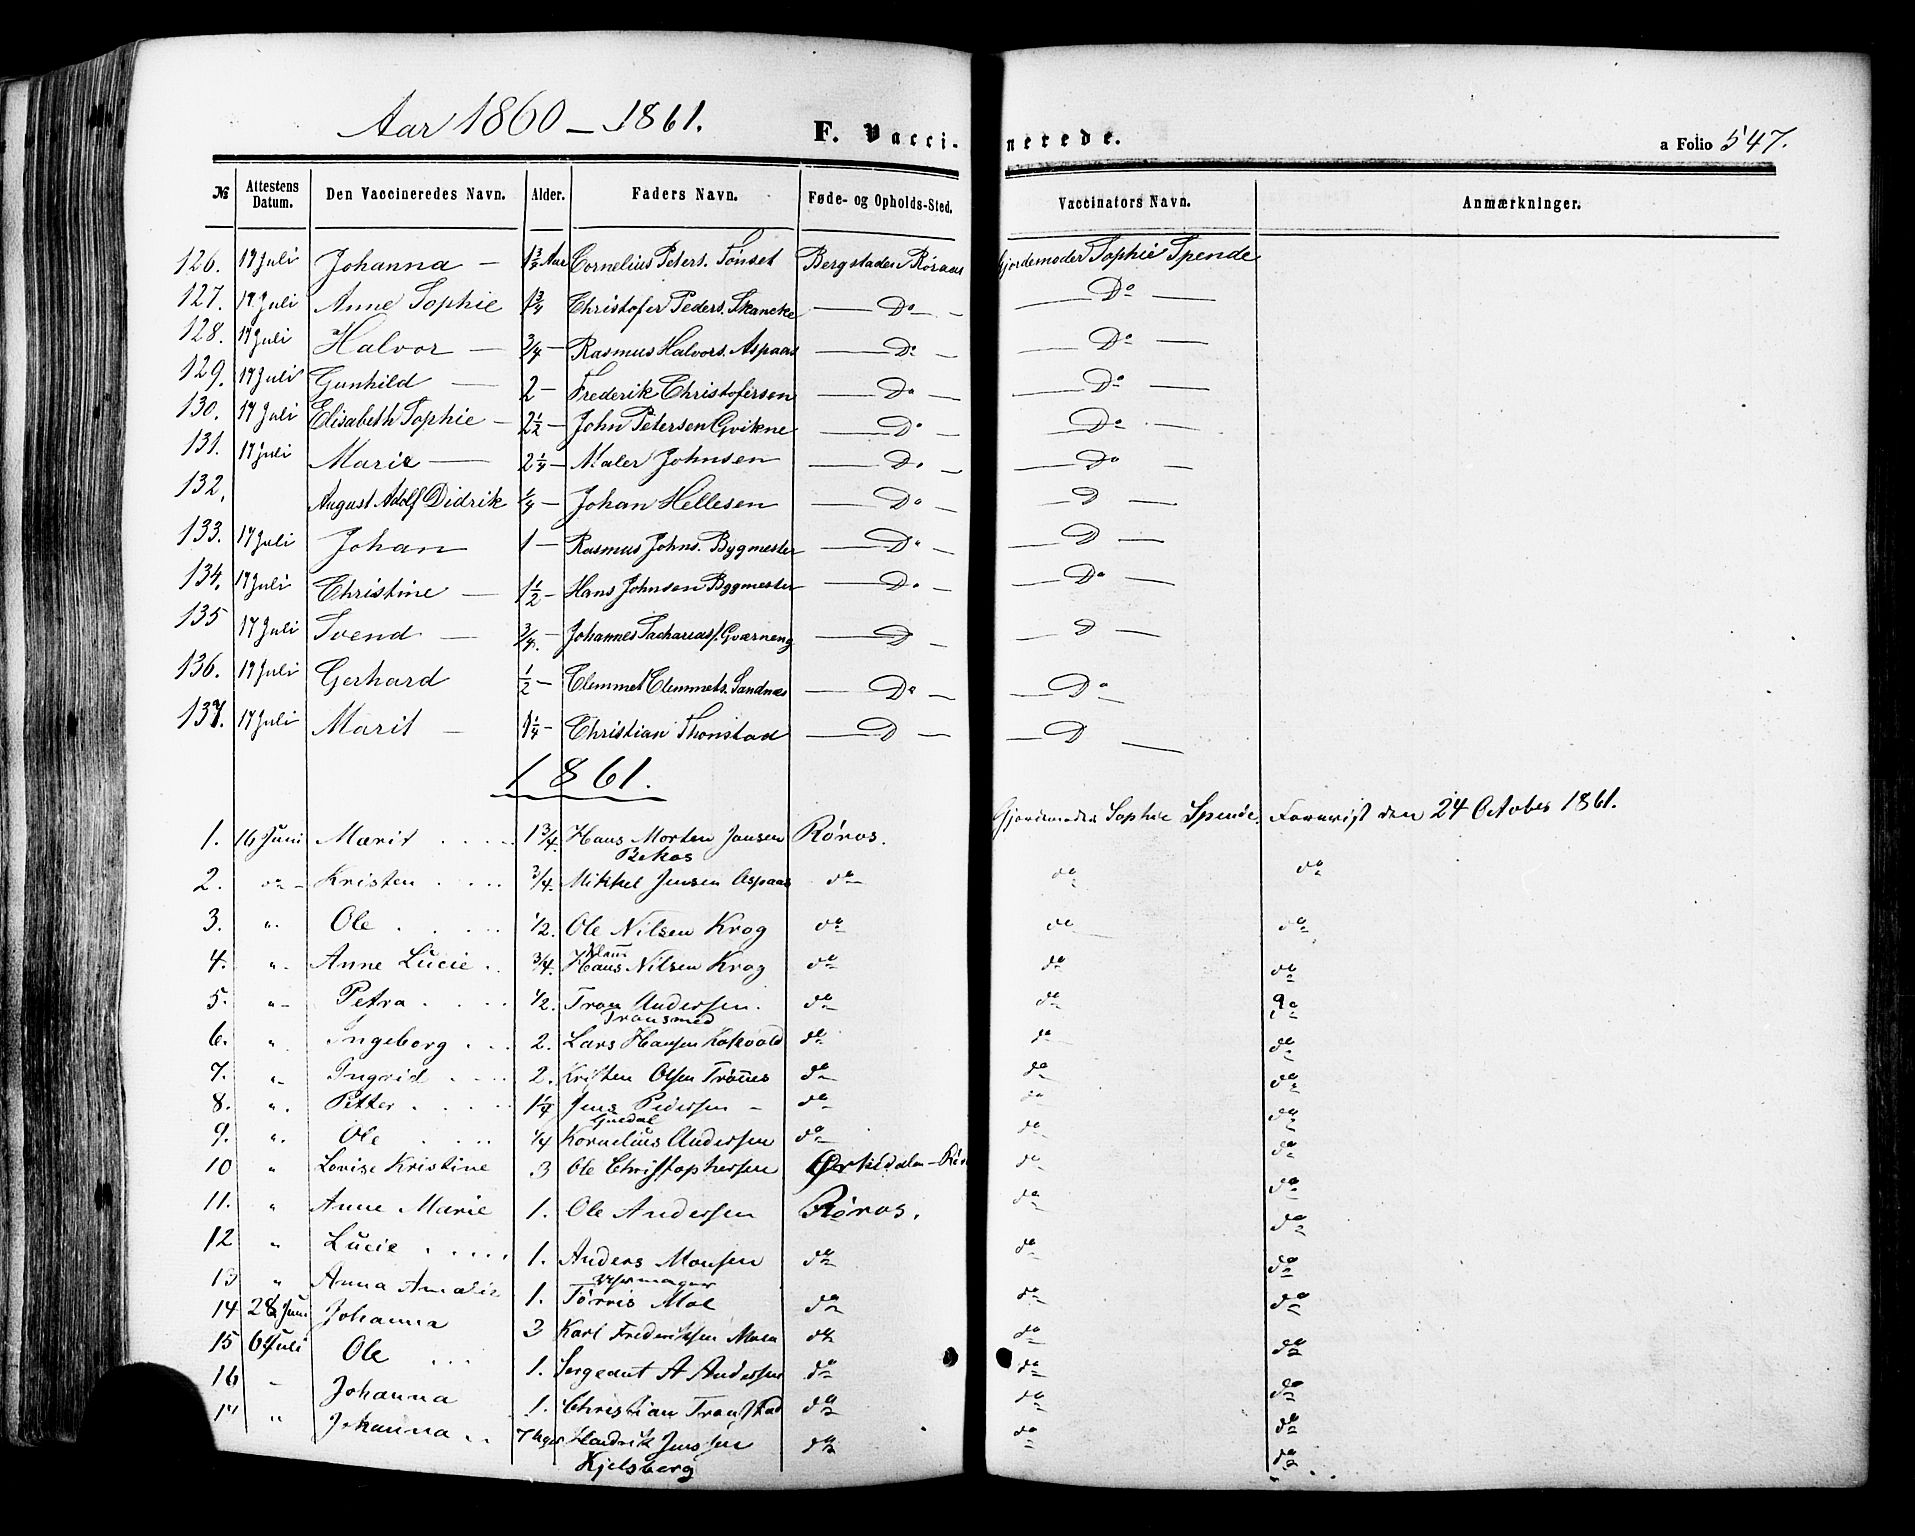 Aar 1860 – 1861.
F. Vaccinerede.
a Folio 547.
№ Attestens Datum. Den Vaccineredes Navn. Alder. Faders Navn. Føde- og Opholds-Sted. Vaccinators Navn. Anmærkninger.
126. 17 Juli Johanna – Aar Cornelius Peters. Tønset Bergstaden Røraas Gjordemoder Sophie Spende
127. 17 Juli Anne Sophie 1 3/4 Christofer Peders. Skancke – Do – – Do –
128. 17 Juli Halvor – 3/4 – Rasmus Halvors. Aspaas – Do – – Do –
129. 17 Juli Gunhild – 2 – Frederik Christofersen – Do – – Do –
130. 17 Juli Elisabeth Sophie – 2 1/2 – John Petersen Gvikne – Do – – Do –
131. 17 Juli Marie – 2 1/4 – Maler Johnsen – Do – – Do –
132. August Adolf Didrik – Johan Hellesen – Do – – D –
133. 17 Juli Johan 1 – Rasmus Johns. Bygmester – Do – – D –
134. 17 Juli Christine – 1 1/2 – Hans Johnsen Bygmester – Do – – Do –
135 17 Juli Svend – 3/4. – Johannes Sachariass. Gværneng – D – – D –
136. 17 Juli Gerhard 1/2 – Clemmet Clemmets. Sandnes – Do – – Do –
137. 17 Juli Marit – 1 1/4 – Christian Thonstad – D – – D –
1861.
1. 16 Juni Marit . . . . . 1 3/4. Hans Morten Jansen Røros. Gjordemoder Sophie Spende. Fornvist den 24 October 1861.
Bekos
2. do – Kristen . . . . 3/4. Mikkel Jensen Aspaas do do do
3. " Ole . . . . . 1/2. Ole Nilsen Krog do do do
4. " Anne Lucie . . 3/4. Hans Nilsen Krog do do do
5. " Petra . . . . 1/2. Tron Andersen. do do do
Tronsmed
6. " Ingeborg . . . 2. Lars Hansen Kokvold do do do
7. " Ingrid . . . . 2. Kristen Olsen Trönes do do do
8. " Petter . . . . . 1 1/4 Jens Pedersen – do do do
9. " Ole . . . . 1/4 Kornelius Andersen do do do
10 " Lovise Kristine 3 Ole Christophersen Ørkedalen – Røros do do
11. " Anne Marie 1. Ole Andersen Røros. do do
12 " Lucie . . . . . 1. Anders Monsen do do do
13 " Anna Amalie 1. Törris Moe do do do
14 28 Juni Johanna 3 Karl Frederiksen Moen do do do
15 6 Juli Ole . . . 1. Sergeant A Andersen do do do
16 – Johanna 1. Christian Tronstad do do do
17 " Johanna . . 7 Uger Hendrik Jenssen do do do
Kjelsberg